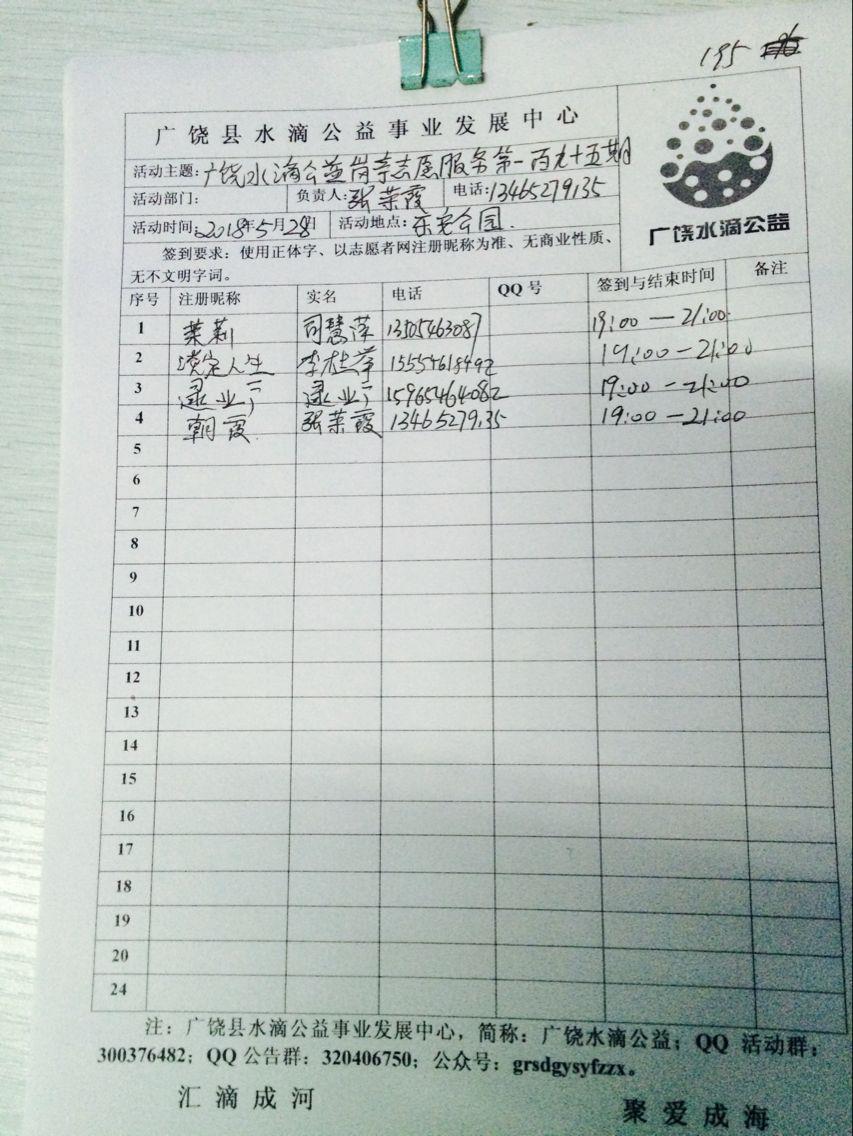 195
广饶县水滴公益事业发展中心
活动主题:广饶水滴公益岗亭志愿服务第一百九十五期
活动部门: 负责人:张荣霞 电话:13465279135
活动时间:2018年5月28日 活动地点:乐安公园.
广饶水滴公益
签到要求:使用正体字、以志愿者网注册昵称为准、无商业性质、
无不文明字词。
序号 注册昵称 实名 电话 QQ号 签到与结束时间 备注
1 茉莉 司慧萍 13505463087 19:00—21:00
2 淡定人生 李桂萍 15554618492 19:00—21:00
3 逯业广 逯业广 15965464082 19:00—21:00
4 朝霞 张荣霞 13465279135 19:00—21:00
5
6
7
8
9
10
11
12
13
14
15
16
17
18
19
20
24
注:广饶县水滴公益事业发展中心,简称:广饶水滴公益;QQ 活动群:
300376482;QQ公告群:320406750;公众号:grsdgysyfzzx。
汇滴成河 聚爱成海